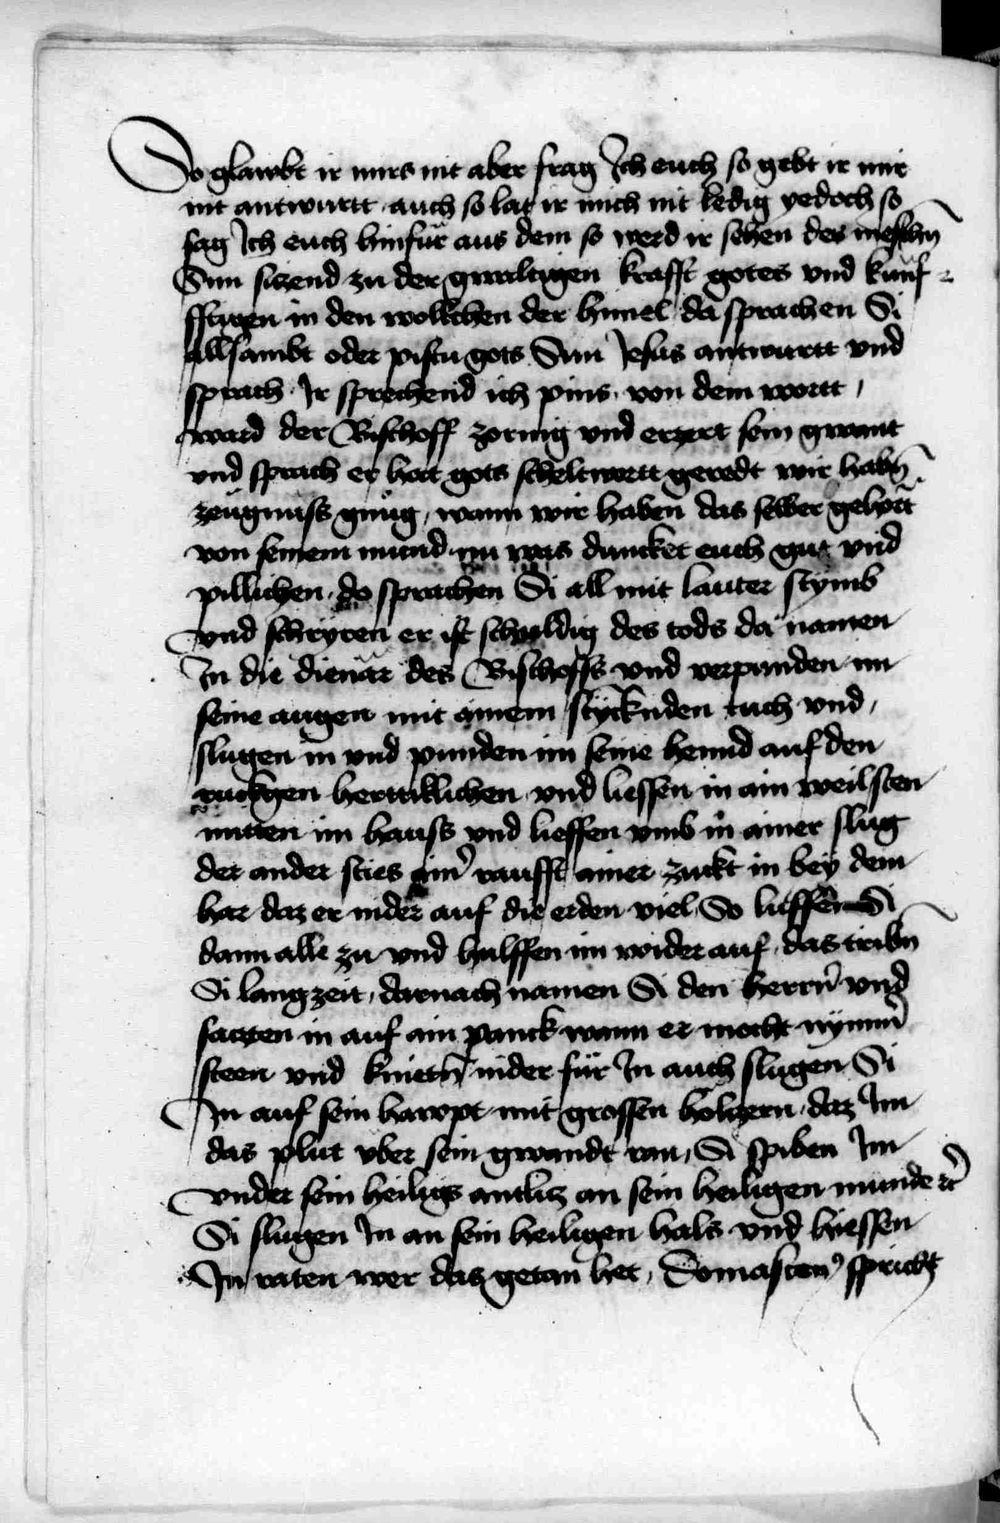 So glawbt ir mirs nit aber frag Ich euch so gebt ir mir
nit antwurtt auch so lat ir mich nit ledig yedoch so
sag Ich euch hinfür aus dem so werd ir sehen des meschn̄
Sun sitzend zu der gwaltigen krafft gotes vnd künf-
fftigen in den wolkchen der himel da sprachen Si
allsambt oder pistu gots Sun Jesus antwurtt vnd
sprach Ir sprechend ich pins von dem wortt
ward der Bischoff zornig vnd erzert sein gwant
vnd sprach er hat gots scheltwortt geredt wir habn̄
zeugnuss gnug, wann wir haben das selber gehört
von seinem mund nu was duncket euch gut vnd
pillichen do sprachen Si all mit lauter stymb
vnd schryren er ist schuldig des tods da namen
In die dienär des Bischoffs vnd verpunden im
seine augen mit ainem stynknden tuch vnd
slugen in vnd punden im seine hennd auf den
rugkgen herttiklichen vnd liessen in ain weil sten
mitten im hauss vnd lieffen vmb in ainer slug
der ander sties ainr̄ raufft ainer zukt in bey dem
har daz er nider auf die erden viel So lieffen Si
dann alle zu vnd hulffen im wider auf das tribn̄
Si lang zeit, darnach namen Si den herrn̄ vnd
satzten in auf ain panck wann er mocht nymm̄
steen vnd knietn̄ nider für In auch slugen Si
In auf sein hawpt mit grossen holtzern daz Im
das plut vber sein gwandt ran, Si spiben Im
vnder sein heiligs antlitz an sein heiligen munde ec̄
Si slugen In an sein heiligen hals vnd hiessen
In raten wer das getan het, Domascen9 spricht